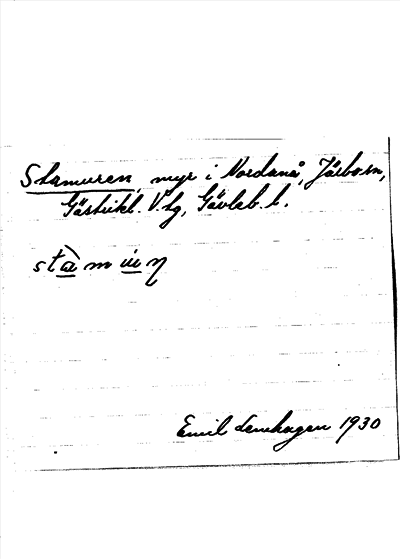 Stamuren, myr i Nordanå, Järbo sn,
Gästrikl. V. tg, Gävleb. l.
stàmúη
Emil Lenhagen 1930